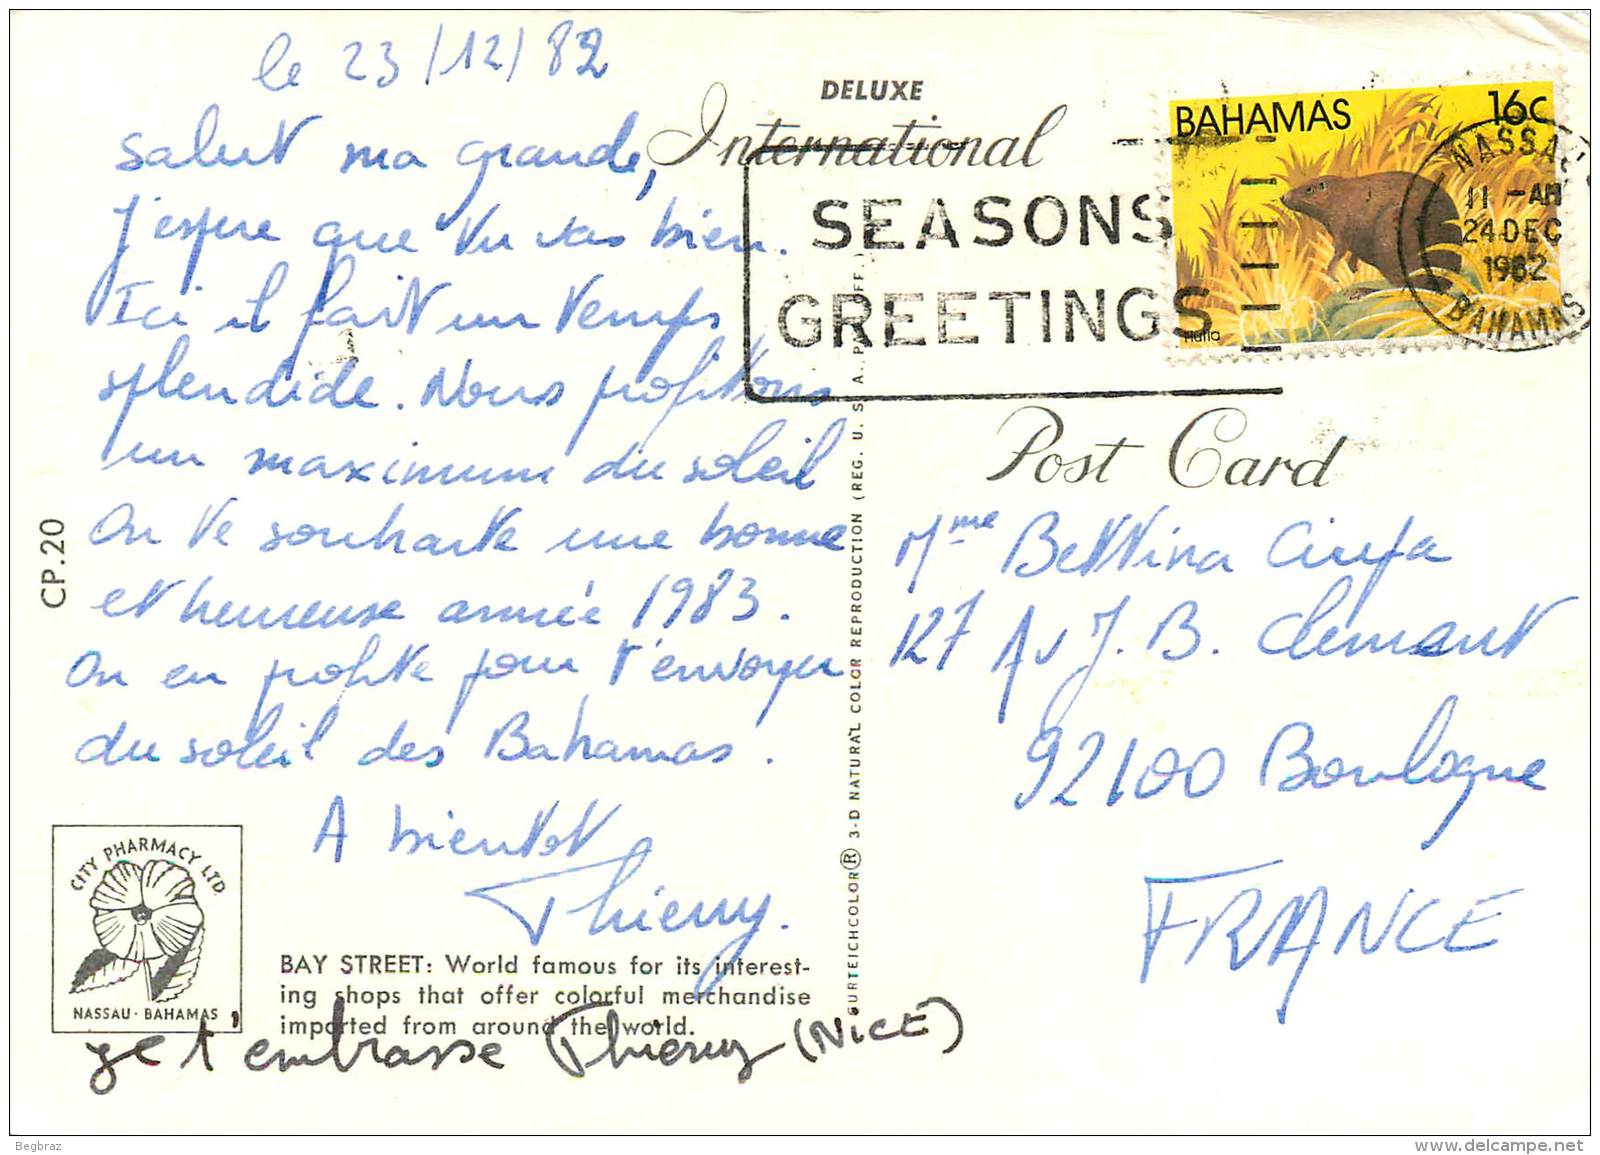 le 23/12/82
salut ma grande,
J'espère que tu vas bien.
Ici il fait un temps
splendide. Nous profitons
un maximum du soleil
On te souhaite une bonne
et heureuse année 1983.
On en profite pour t'envoyer
du soleil des Bahamas.
A bientot
Thierry.
je t'embrasse Thierry (NICE)
CP.20
CITY PHARMACY LTD.
NASSAU · BAHAMAS
BAY STREET: World famous for its interest-
ing shops that offer colorful merchandise
imported from around the world.
DELUXE
International
Post Card
SEASONS
GREETINGS
BAHAMAS 16c
Hutia
NASSAU
11 -AM
24 DEC
1982
BAHAMAS
CURTEICHCOLOR® 3-D NATURAL COLOR REPRODUCTION (REG. U. S. A. PAT. OFF.)
Mme Bettina
127 Av J. B. Clement
92100 Boulogne
FRANCE
Begbraz
www.delcampe.net